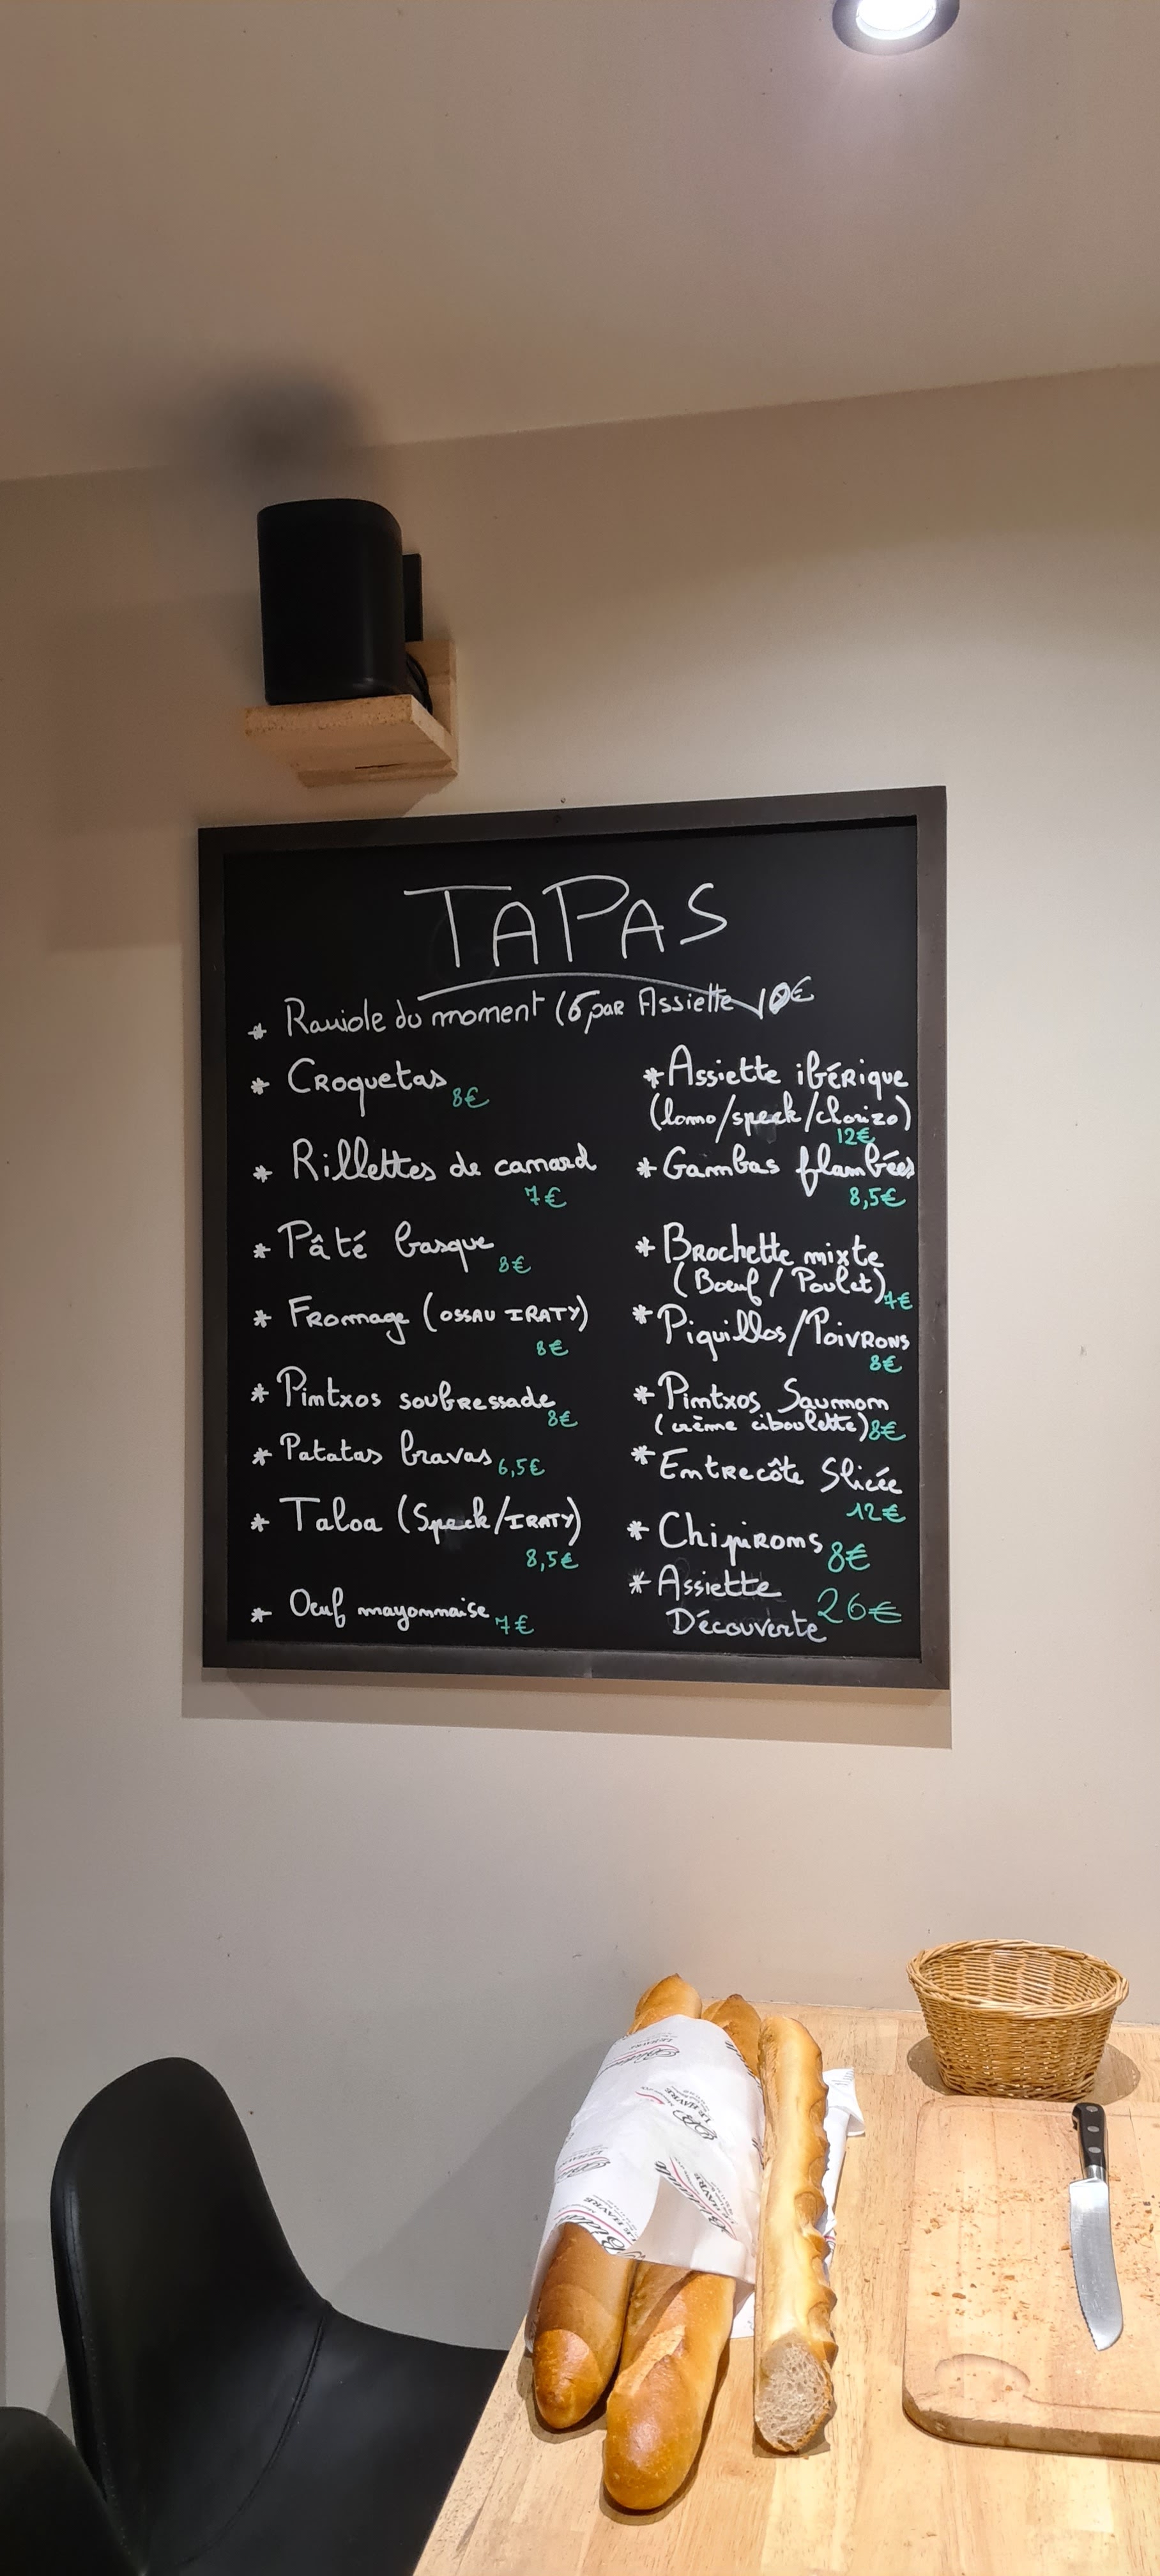 TAPAS
* Raviole du moment (6 par Assiette 10€
* Croquetas 8€
* Rillettes de canard
7€
* Pâté basque 8€
* Fromage (OSSAU IRATY)
8€
* Pintxos soubressade
8€
* Patatas bravas 6,5€
* Taloa (Speck/IRATY)
8,5€
* Oeuf mayonnaise 7€
* Assiette ibérique
(lomo/speck/chorizo)
12€
* Gambas flambées
8,5€
* Brochette mixte
(Boeuf / Poulet) 7€
* Piquillos/Poivrons
8€
* Pintxos Saumon
(crème ciboulette) 8€
* Entrecôte Slicée
12€
* Chipirons 8€
* Assiette
Découverte 26€
LE HAVRE
LE HAVRE
LE HAVRE